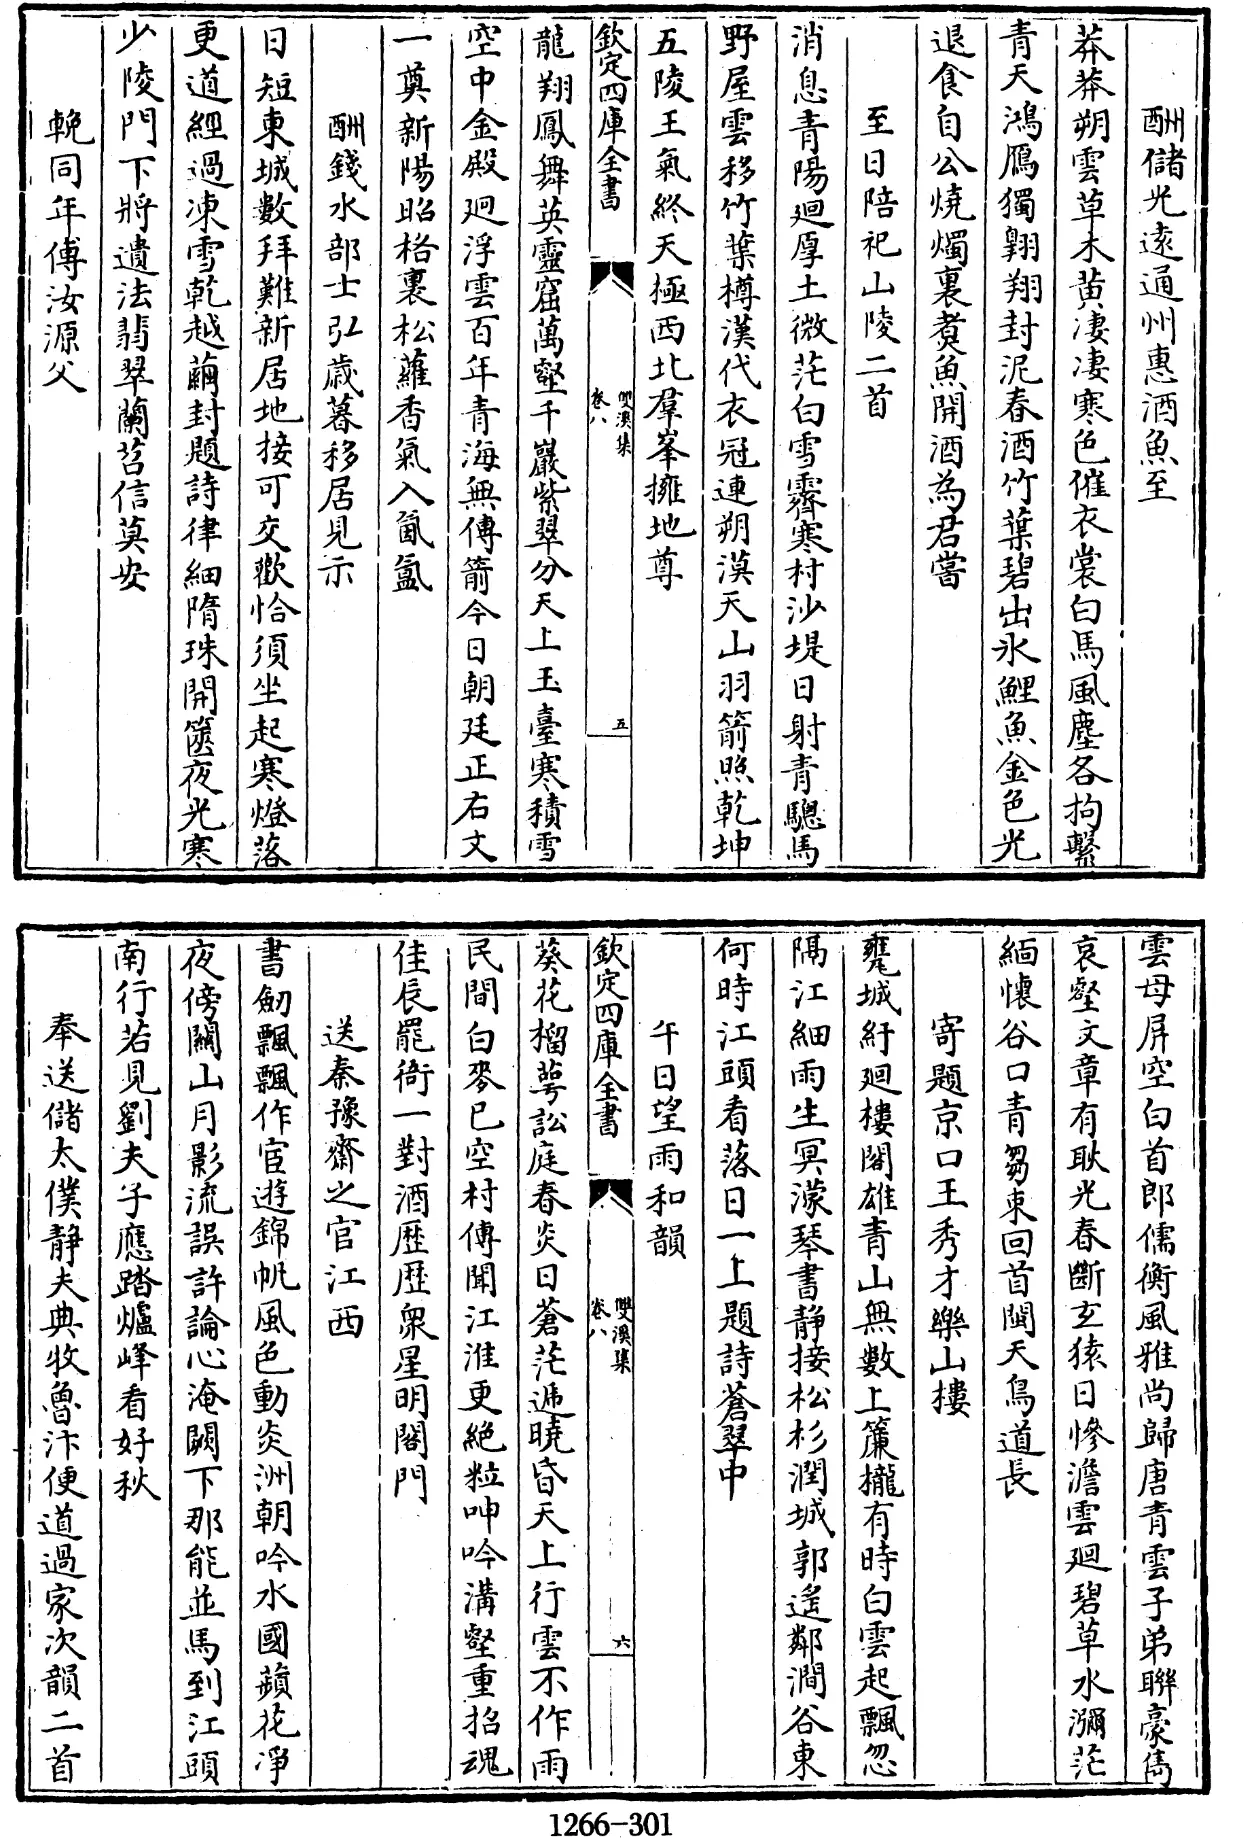 酬儲光遠通州惠酒魚至
莽莽朔雲草木黄凄凄寒色催衣裳白馬風塵各拘繫
青天鴻鴈獨翺翔封泥春酒竹葉碧出氷鯉魚金色光
退食自公燒燭裏煑魚開酒為君嘗
至日陪祀山陵二首
消息青陽廻厚土微茫白雪霽寒村沙堤日射青驄馬
野屋雲移竹葉樽漢代衣冠連朔漠天山羽箭照乾坤
五陵王氣終天極西北羣峯擁地尊
欽定四庫全書
雙溪集
卷八
五
龍翔鳳舞英靈窟萬壑千巖紫翠分天上玉臺寒積雪
空中金殿廻浮雲百年青海無傳箭今日朝廷正右文
一奠新陽昭格裏松蘿香氣入氤氲
酬錢水部士弘歲暮移居見示
日短東城數拜難新居地接可交歡恰須坐起寒燈落
更道經過凍雪乾越繭封題詩律細隋珠開篋夜光寒
少陵門下將遺法翡翠蘭苕信莫安
輓同年傅汝源父
雲母屏空白首郎儒衡風雅尚歸唐青雲子弟聯豪雋
哀壑文章有耿光春斷玄猿日慘澹雲廻碧草水瀰茫
緬懷谷口青芻束回首閩天鳥道長
寄題京口王秀才樂山樓
甕城紆廻樓閣雄青山無數上簾櫳有時白雲起飄忽
隔江細雨生冥濛琴書靜接松杉潤城郭遙鄰澗谷東
何時江頭看落日一上題詩蒼翠中
午日望雨和韻
欽定四庫全書
雙溪集
卷八
六
葵花榴萼訟庭春炎日蒼茫遞曉昏天上行雲不作雨
民間白麥已空村傳聞江淮更絶粒呻吟溝壑重招魂
佳辰罷衙一對酒歷歷衆星明閣門
送秦豫齋之官江西
書劒飄飄作宦遊錦帆風色動炎洲朝吟水國蘋花凈
夜傍關山月影流誤許論心淹闕下那能並馬到江頭
南行若見劉夫子應踏爐峰看好秋
奉送儲太僕靜夫典牧魯汴便道過家次韻二首
1266-301